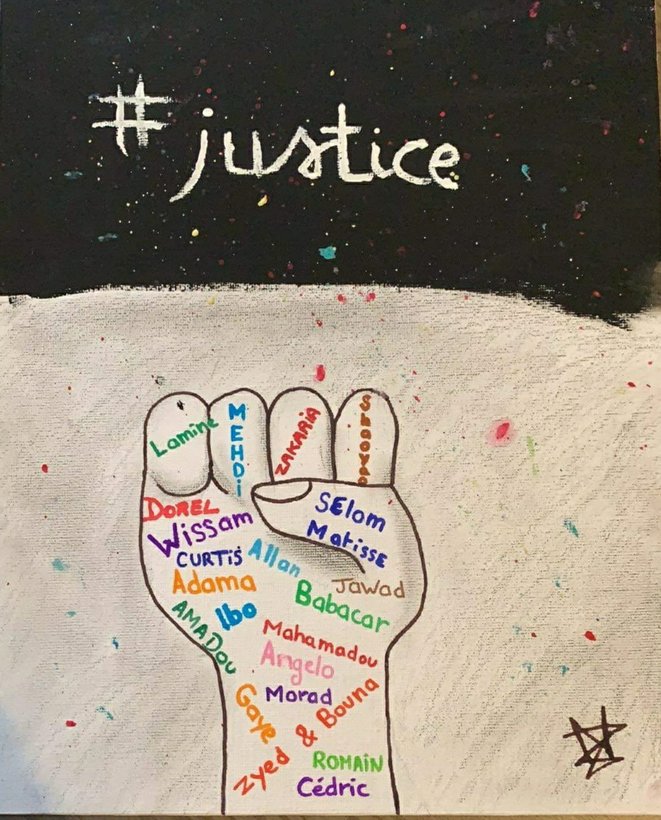 #justice
Lamine
MEHDi
ZAKARiA
ShaoYao
DOREL
Wissam
SElom
Matisse
CURTiS
Allan
Adama
Jawad
Babacar
Ibo
AMADou
Mahamadou
Angelo
Morad
Gaye
Zyed & Bouna
ROMAiN
Cédric